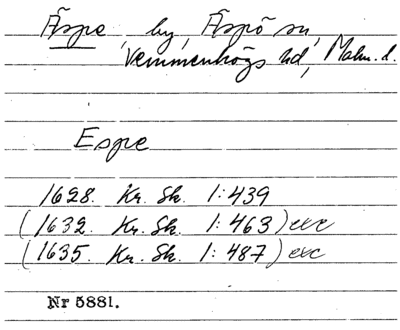 Äspe, by, Äspö sn,
Vemmenhögs hd, Malm. l.
Espe
1628. Kr. Sk. 1:439
(1632. Kr. Sk. 1:463) exc
(1635. Kr. Sk. 1:487) exc
Nr 5881.